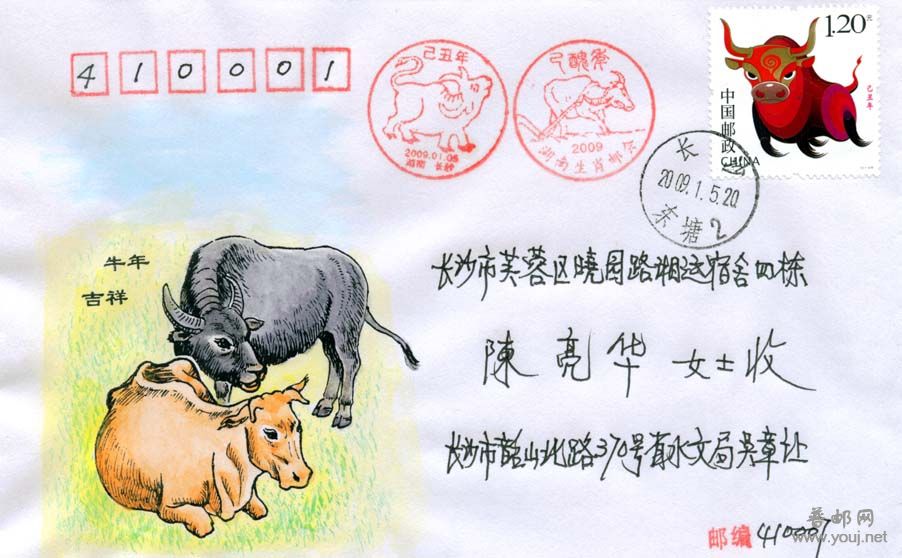 410001
己丑年
2009.01.05
湖南 长沙
2009
湖南生肖邮会
1.20元
中国邮政
CHINA
己丑年
长沙
2009.1.5.20
茶塘2
牛年
吉祥
长沙市芙蓉区晓园路湘运宿舍四栋
陳亮华 女士收
长沙市韶山北路370号省水文局吴章让
邮编 410007
普邮网
www.youj.net